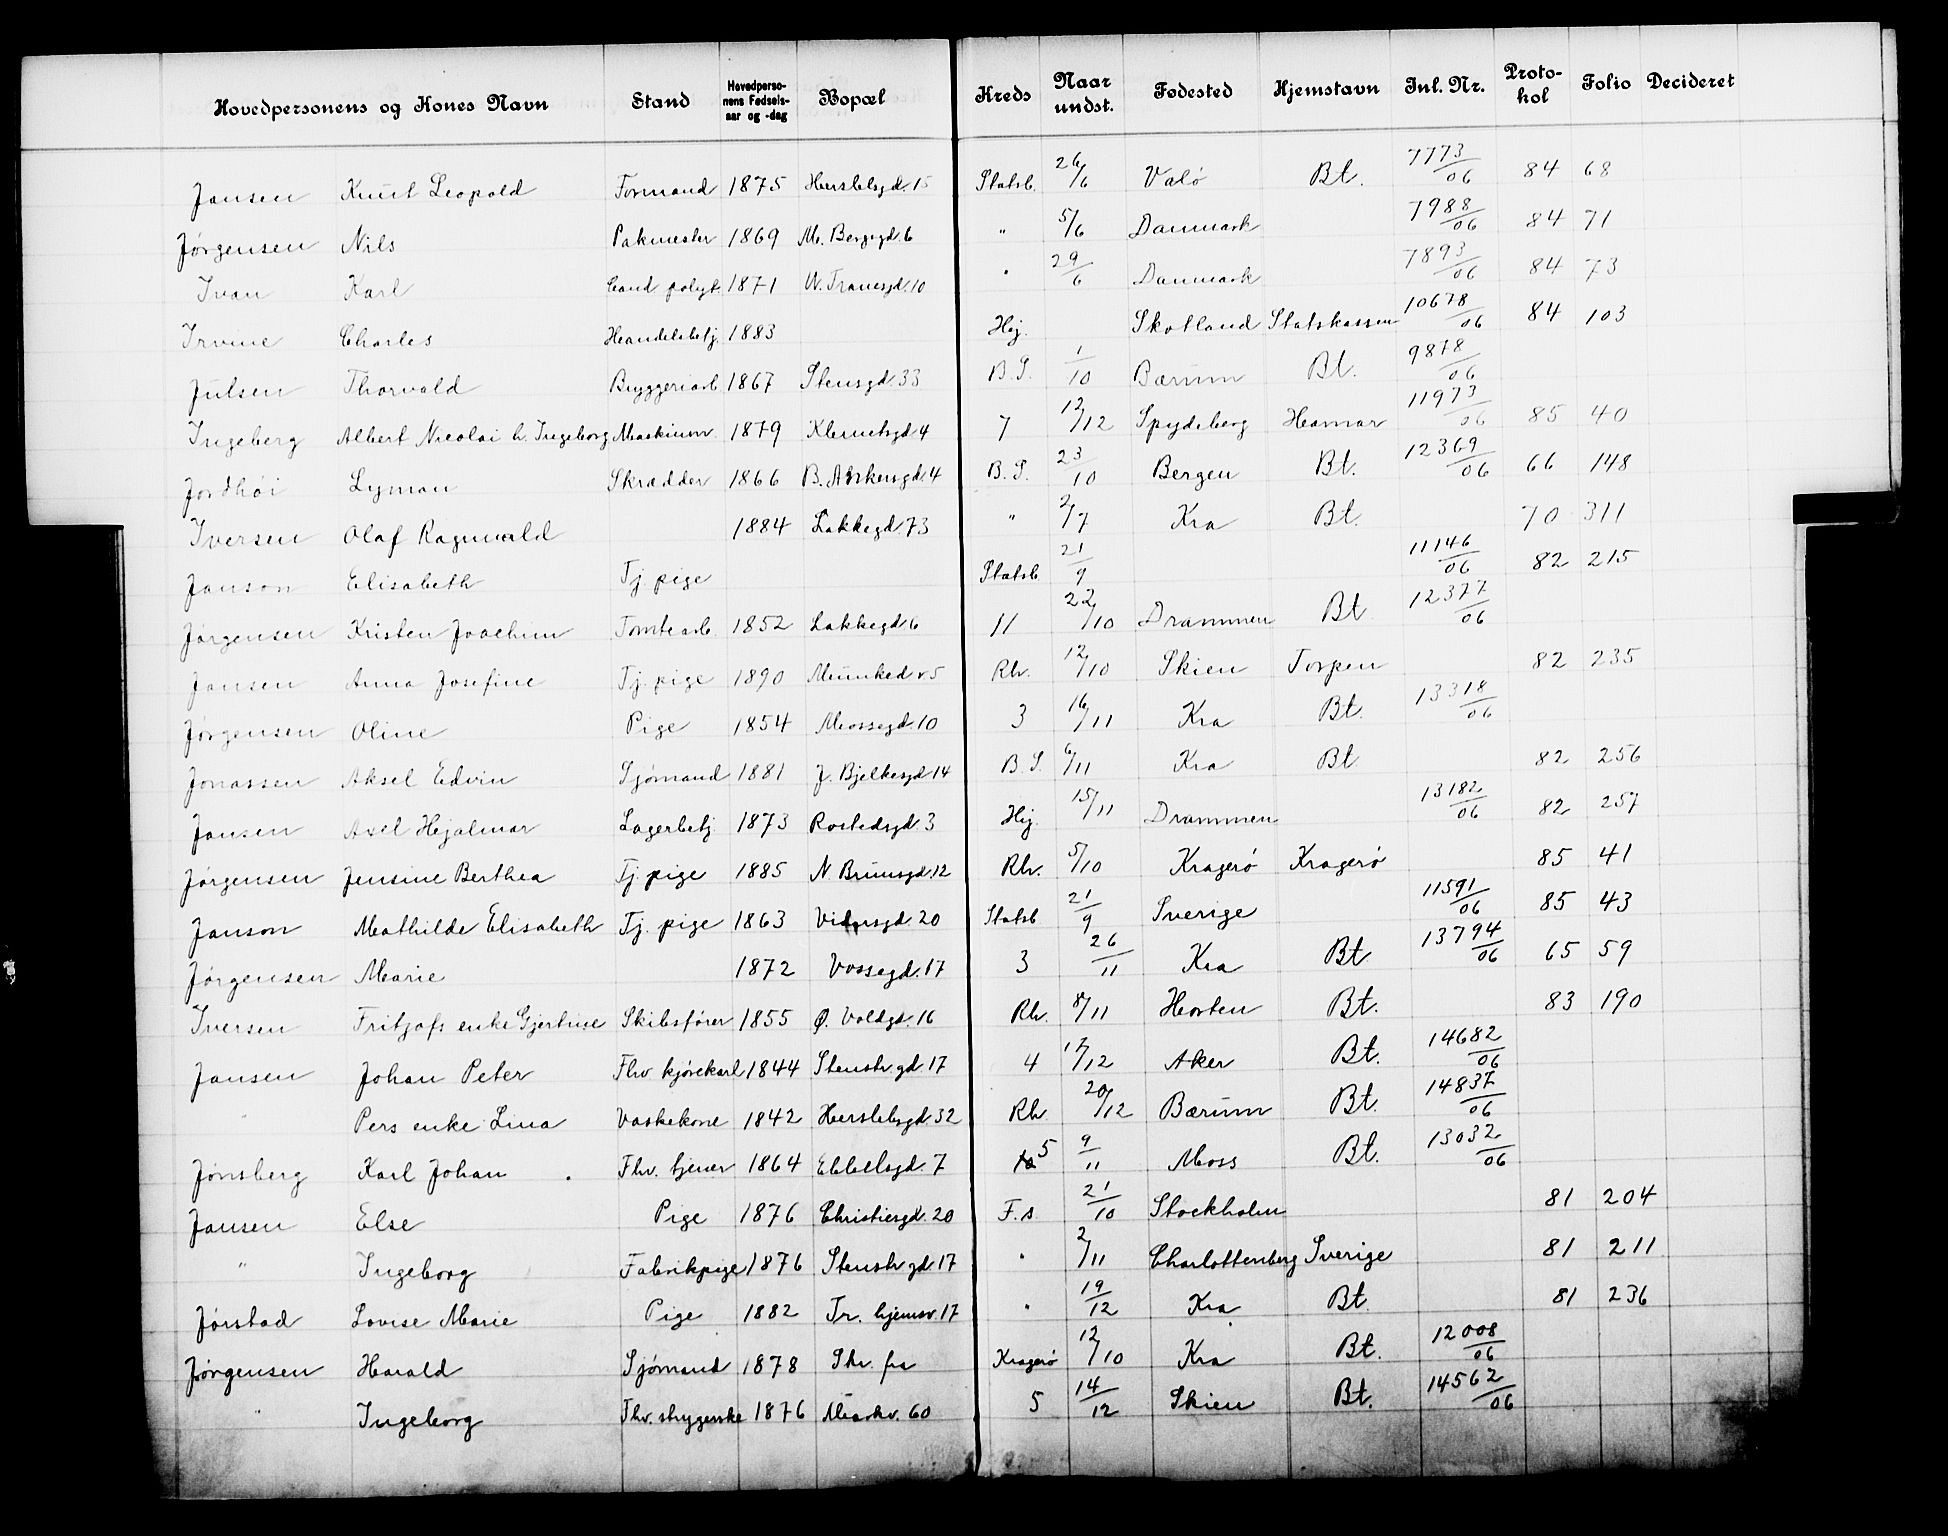 Hovedpersonens og Kones Navn Stand Hovedpersonens Fødsels-aar og -dag Bopæl Kreds Naar undst. Fødested Hjemstavn Inl. Nr. Protokol Folio Decideret
Jansen Knut Leopold Formand 1875 Herslebsgd. 15 Statsb. 26/6 Valø Bt. 7773/06 84 68
Jørgensen Nils Pakmester 1869 M. Bergsgd. 6 " 5/6 Danmark 7988/06 84 71
Ivan Karl Cand polyt. 1871 W. Tranesgd. 10 " 29/6 Danmark 7893/06 84 73
Irvine Charles Handelsbetj. 1883 Hej. Skotland Statskassen 10678/06 84 103
Julsen Thorvald Bryggeriarb 1867 Stensgd. 33 B.S. 1/10 Bærum Bt. 9878/06
Ingeberg Albert Nicolai h. Ingeborg Maskinm. 1879 Klemetsgd 4 7 12/12 Spydeberg Hamar 11973/06 85 40
Jordhøi Lyman Skrædder 1866 B. Askersgd. 4 B.S. 23/10 Bergen Bt. 12369/06 66 148
Iversen Olaf Ragnvald 1884 Lakkegd. 73 " 2/7 Kra Bt. 70 311
Janson Elisabeth Tj. pige Statsb 21/9 11146/06 82 215
Jørgensen Kristen Joachim Tomtearb. 1852 Lakkegd. 6 11 22/10 Drammen Bt. 12377/06
Jansen Anna Josefine Tj. pige 1890 Munked v. 5 Rh. 12/10 Skien Torpen 82 235
Jørgensen Oline Pige 1854 Mossegd. 10 3 16/11 Kra Bt. 13318/06
Jonassen Aksel Edvin Sjømand 1881 J. Bjelkesgd 14 B.S. 6/11 Kra Bt 82 256
Jansen Axel Hjalmar Lagerbetj. 1873 Rostedsgd. 3 Hej. 15/11 Drammen 13182/06 82 257
Jørgensen Jensine Berthea Tj. pige 1885 N. Brunsgd. 12 Rh. 5/10 Kragerø Kragerø 85 41
Janson Mathilde Elisabeth Tj. pige 1863 Vidarsgd. 20 Statsb 21/9 Sverige 11591/06 85 43
Jørgensen Marie 1872 Vossegd. 17 3 26/11 Kra Bt 13794/06 65 59
Iversen Fritjofs enke Gjertine Skibsfører 1855 Ø. Voldgd. 16 Rh. 8/11 Horten Bt. 83 190
Jansen Johan Peter Fhv kjørekarl 1844 Stenstr gd. 17 4 17/12 Aker Bt. 14682/06
" Pers enke Lina Vaskekone 1842 Herslebsgd. 32 Rh. 20/12 Bærum Bt. 14837/06
Jønsberg Karl Johan Fhv. tjener 1864 Ebbelsgd. 7 5 9/11 Moss Bt. 13032/06
Jansen Else Pige 1876 Christiesgd. 20 F.s. 21/10 Stockholm 81 204
" Ingeborg Fabrikpige 1876 Stenstr gd 17 " 2/11 Charlottenberg Sverige 81 211
Jørstad Lovise Marie Pige 1882 Tr. hjemsv. 17 " 19/12 Kra Bt. 81 236
Jørgensen Harald Sjømand 1878 Skr. fra Kragerø 12/10 Kra Bt. 12008/06
" Ingeborg Fhv. strygerske 1876 Markv. 60 5 14/12 Skien Bt. 14562/06